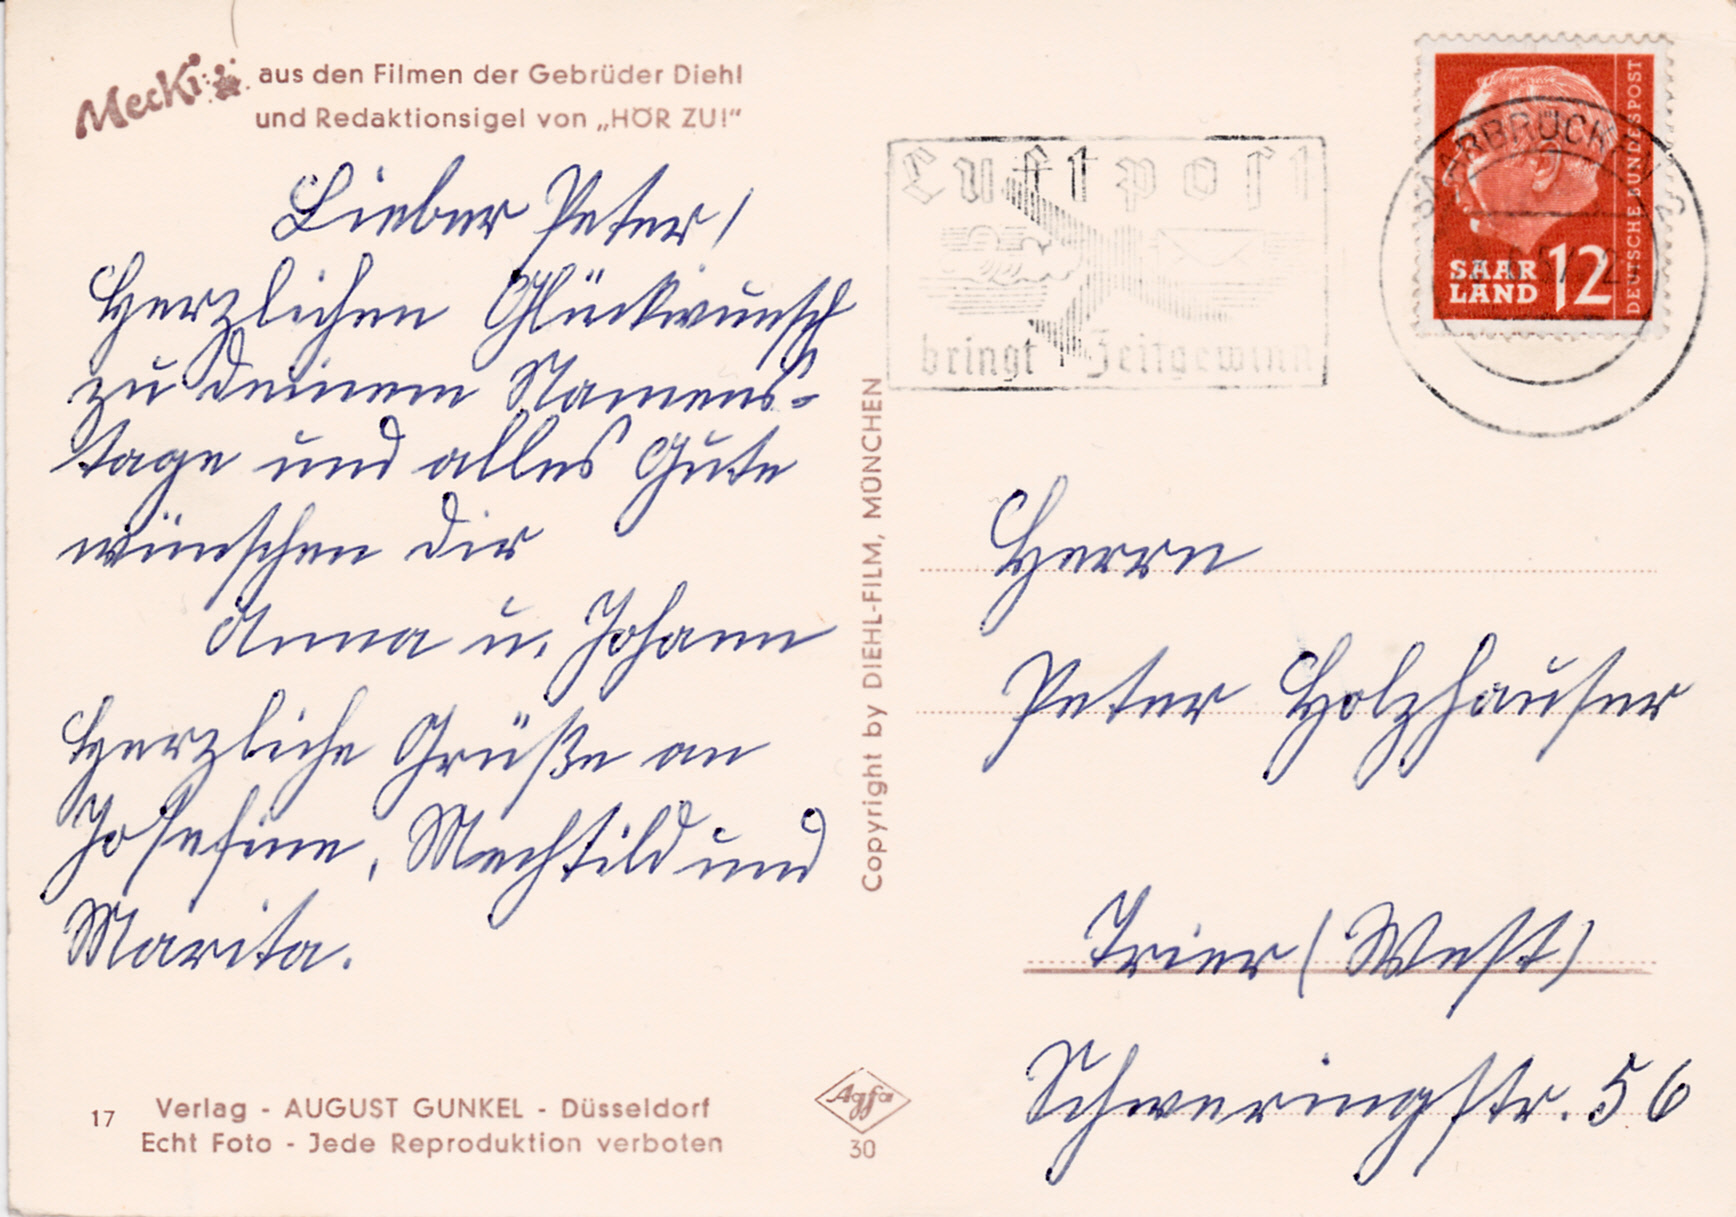 Mecki aus den Filmen der Gebrüder Diehl
und Redaktionsigel von „HÖR ZU!"
Lieber Peter!
Herzlichen Glückwunsch
zu deinem Namens-
tage und alles Gute
wünschen dir
Anna u. Johann
Herzliche Grüße an
Josefine, Mechtild und
Marita.
17 Verlag - AUGUST GUNKEL - Düsseldorf
Echt Foto - Jede Reproduktion verboten
Copyright by DIEHL-FILM, MÜNCHEN
Agfa
30
Luftpost
bringt Zeitgewinn
SAARBRÜCKEN 2
SAAR
LAND 12
DEUTSCHE BUNDESPOST
Herrn
Peter Holzhauser
Trier (West)
Schweringstr. 56